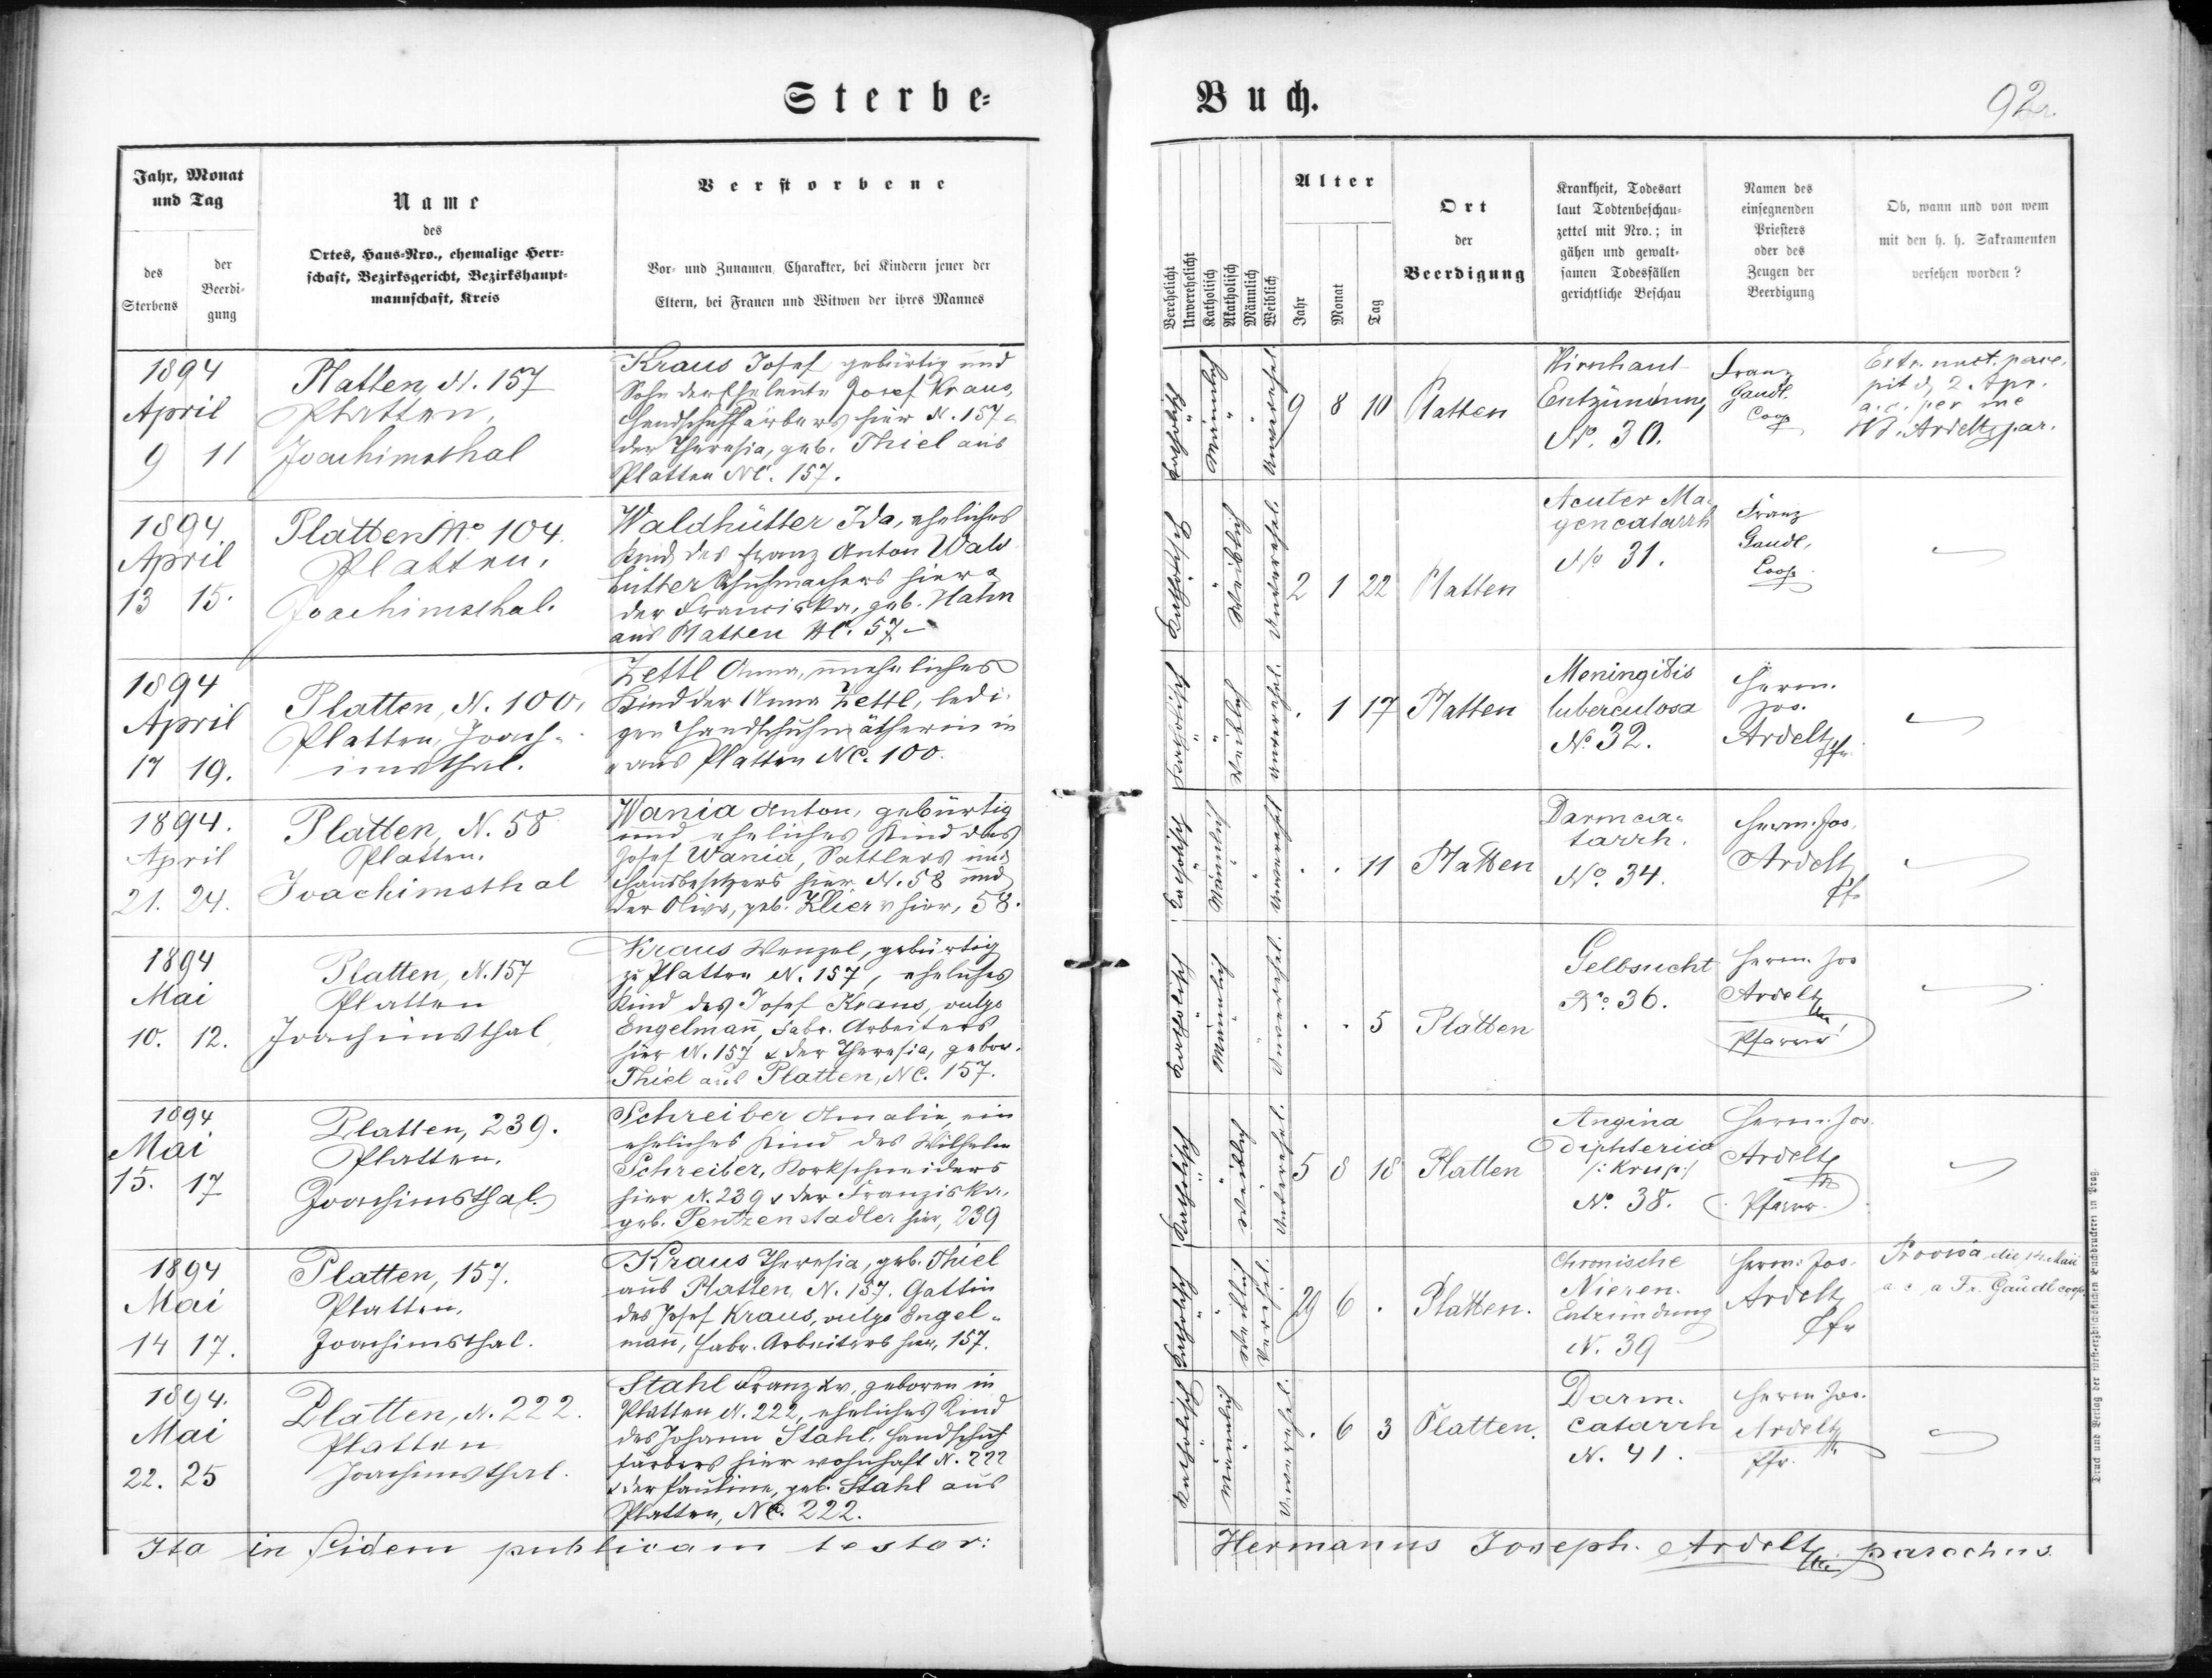 Sterbe-
Buch.
92.
Jahr, Monat und Tag
des Sterbens
der Beerdigung
Name
des
Ortes, Haus-Nro., ehemalige Herr-
schaft, Bezirksgericht, Bezirkshaupt-
mannschaft, Kreis
Verstorbene
Vor- und Zunamen, Charakter, bei Kindern jener der
Eltern, bei Frauen und Witwen der ihres Mannes
Verehelicht
Unverehelicht
Katholisch
Akatholisch
Männlich
Weiblich
Alter
Jahr
Monat
Tag
Ort
der
Beerdigung
Krankheit, Todesart
laut Todtenbeschau-
zettel mit Nro.; in
gähen und gewalt-
samen Todesfällen
gerichtliche Beschau
Namen des
einsegnenden
Priesters
oder des
Zeugen der
Beerdigung
Ob, wann und von wem
mit den h. h. Sakramenten
versehen worden?
1894
April
9 11
Platten, N. 157
Platten,
Joachimsthal
Kraus Josef, gebürtig und
Sohn der Eheleute Josef Kraus,
Handschuhfärbers hier N. 157 &
der Theresia, geb. Thiel aus
Platten NC. 157.
Katholisch
Männlich
Unverehel.
9 8 10
Platten
Hirnhaut
Entzündung
No. 30.
Franz
Gaudl.
Coop
Extr. unct. perce-
pit d. 2. Apr.
a. c. per me
HJ. Ardelt, par.
1894.
April
13 15.
Platten No 104.
Platten,
Joachimsthal.
Waldhütter Ida, eheliches
Kind des Franz Anton Wald
hütter Schuhmachers hier &
der Franciska, geb. Hahn
aus Platten NC. 57.
Katholisch
Weiblich
Unverehel.
2 1 22
Platten
Acuter Ma-
gencatarrh
No 31.
Franz
Gaudl,
Coop.
1894
April
17 19.
Platten, N. 100,
Platten, Joach-
imsthal.
Zettl Anna, uneheliches
Kind der Anna Zettl, ledi-
gen Handschuhnätherin in
& aus Platten NC. 100.
Katholisch
Weiblich
Unverehel.
. 1 17
Platten
Meningitis
tuberculosa
No. 32.
Herm.
Jos.
Ardelt
Pfr.
1894.
April
21. 24.
Platten, N. 58
Platten.
Joachimsthal
Wania Anton, gebürtig
und eheliches Kind des
Josef Wania, Sattlers und
Hausbesitzers hier N. 58 und
der Oliva, geb. Klier v hier, 58.
Katholisch
Männlich
Unverehel
. . 11
Platten
Darmca-
tarrh.
No. 34.
Herm. Jos.
Ardelt
Pfr
1894
Mai
10. 12.
Platten, N. 157
Platten
Joachimsthal
Kraus Wenzel, gebürtig
zu Platten N. 157, eheliches
Kind des Josef Kraus, vulgo
Engelmañ, Fabr. Arbeiters
hier N. 157 & der Theresia, gebor.
Thiel aus Platten, NC. 157.
Katholisch
Männlich
Unverehel.
. . 5
Platten
Gelbsucht
No. 36.
Herm. Jos
Ardelt
Pfarrer
1894
Mai
15. 17
Platten, 239.
Platten.
Joachimsthal.
Schreiber Amalie, ein
eheliches Kind des Wilhelm
Schreiber, Korkschneiders
hier N. 239 & der Franziska,
geb. Pentzenstadler hier, 239
Katholisch
Weiblich
Unverehel.
5 8 18
Platten
Angina
diphteriica
/: Krup :/
No. 38.
Herm. Jos.
Ardelt
Pfarrer.
1894
Mai
14 17.
Platten, 157.
Platten,
Joachimsthal.
Kraus Theresia, geb. Thiel
aus Platten, N. 157. Gattin
des Josef Kraus, vulgo Engel-
mañ, Fabr. Arbeiters hier, 157.
Katholisch
Weiblich
Verehel.
29 6 .
Platten.
Chronische
Nieren-
Entzündung
N. 39
Herm. Jos.
Ardelt
Pfr
Provisa die 14. Maii
a. c. a Fr. Gaudl coop.
1894.
Mai
22. 25
Platten, N. 222.
Platten
Joachimsthal.
Stahl Franz Xv, geboren in
Platten N. 222, eheliches Kind
des Johann Stahl, Handschuh
färbers hier wohnhaft N. 222
& der Pauline, geb. Stahl aus
Platten, NC. 222.
Katholisch
Männlich
Unverehel.
. 6 3
Platten.
Darm-
catarrh
N. 41.
Herm. Jos.
Ardelt
Pfr.
Ita in fidem publicam testor:
Hermanus Joseph. Ardelt parochus.
Druck und Verlag der fürst-erzbischöflichen Buchdruckerei in Prag.